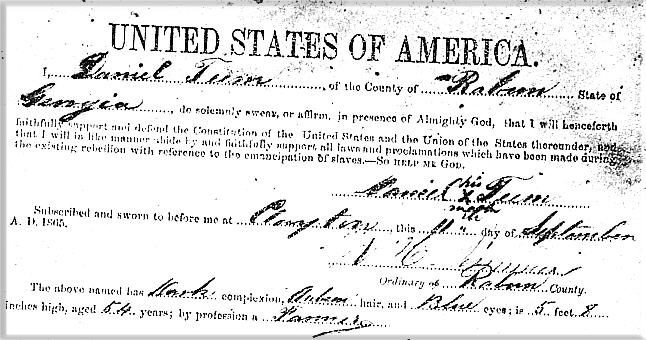 UNITED STATES OF AMERICA.
I, Daniel Tum, of the County of Rabun State of
Georgia, do solemnly swear, or affirm, in presence of Almighty God, that I will henceforth
faithfully support and defend the Constitution of the United States and the Union of the States thereunder, and
that I will in like manner abide by and faithfully support all laws and proclamations which have been made during
the existing rebellion with reference to the emancipation of slaves.—SO HELP ME GOD.
his
Daniel X Tum
mark
Subscribed and sworn to before me at Clayton, this 11" day of September
A. D. 1865.
Ordinary of Rabun County.
The above named has Dark complexion, Auburn hair, and Blue eyes; is 5 feet 8
inches high, aged 54 years; by profession a Farmer